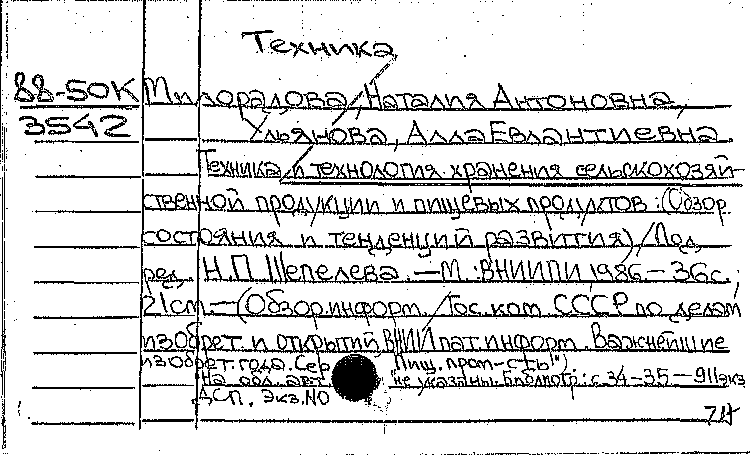 Техника
88-50К Милорадова, Наталия Антоновна,
3542 Ульянова, Алла Евлантиевна.
Техника и технология хранения сельскохозяй-
ственной продукции и пищевых продуктов: (Обзор
состояния и тенденций развития) / Под
ред. Н.П. Шепелева. — М.: ВНИИПИ 1986 — 36 с.;
21 cm. — (Обзор. информ. / Гос. ком. СССР по делам
изобрет. и открытий, ВНИИ пат. информ. Важнейшие
изобрет. года. Сер. "Пищ. пром-сть")
На обл. авт. не указаны. Библиогр.: с 34-35 — 911 экз
ДСП. Экз. №